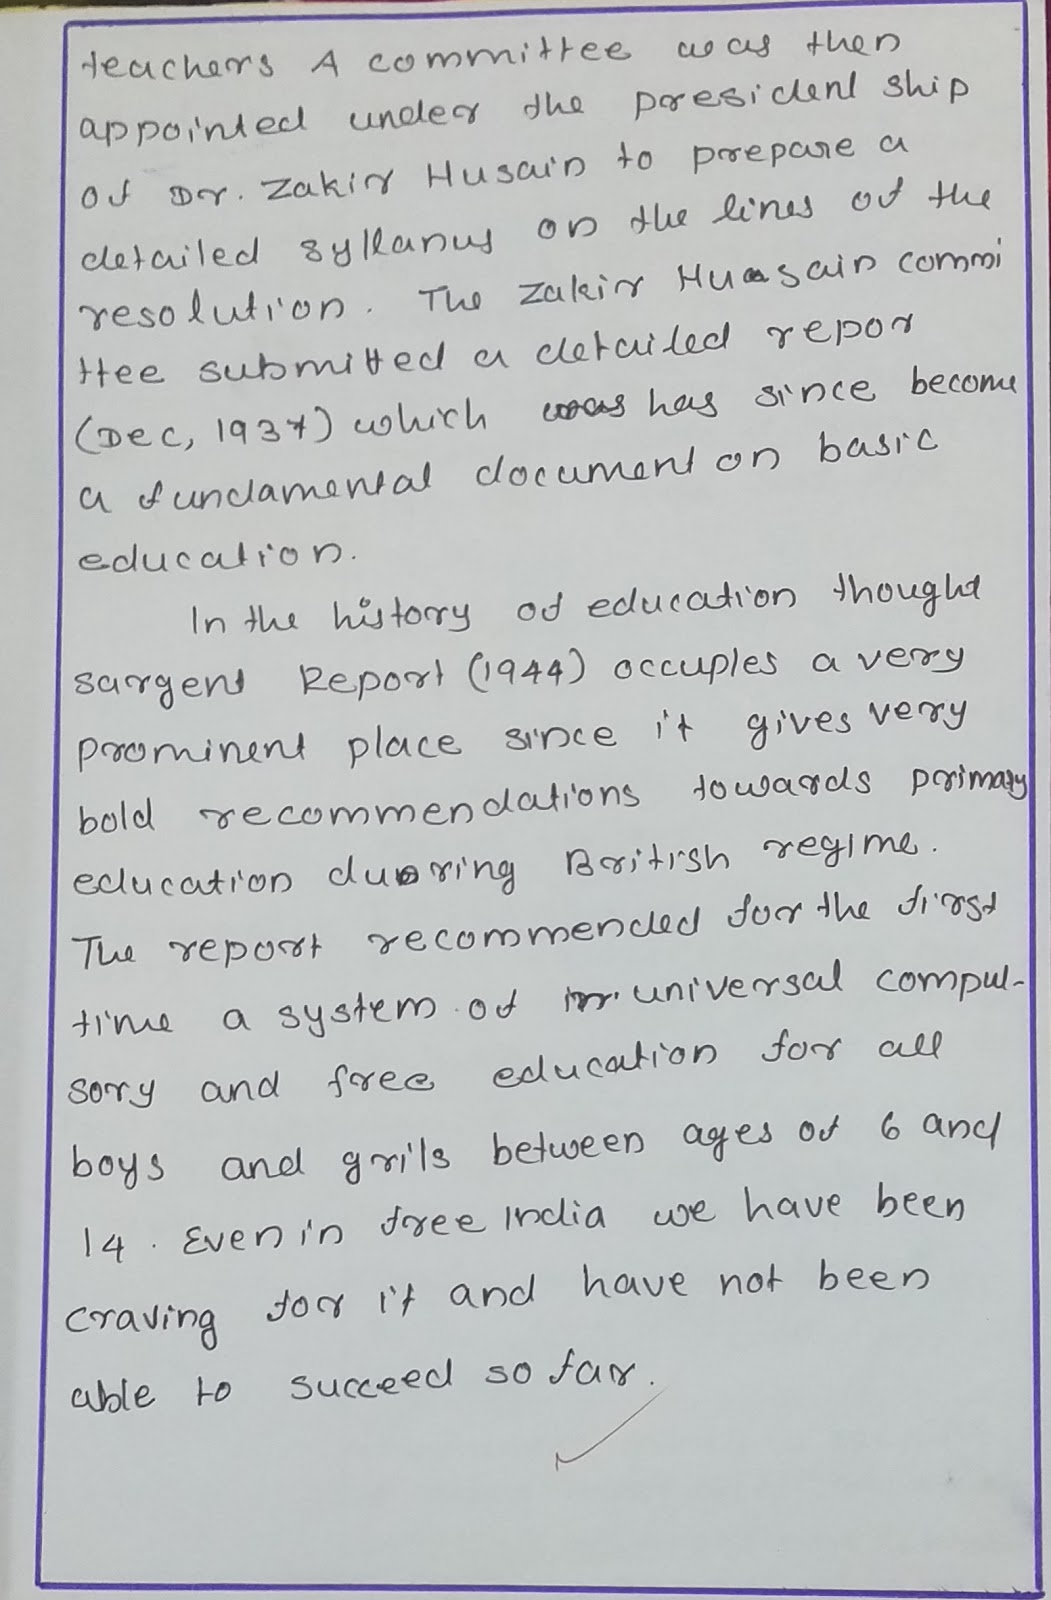 teachers A committee was then
appointed under the president ship
of Dr. Zakir Husain to prepare a
detailed syllanus on the lines of the
resolution. The Zakir Huasain commi
ttee submitted a detailed repor
(Dec, 1937) which was has since become
a fundamental document on basic
education.
In the history of education thought
sargent Report (1944) occuples a very
prominent place since it gives very
bold recommendations towards primary
education during British regime.
The report recommended for the first
time a system of universal compul-
sory and free education for all
boys and grils between ages of 6 and
14. Even in free India we have been
craving for it and have not been
able to succeed so far.